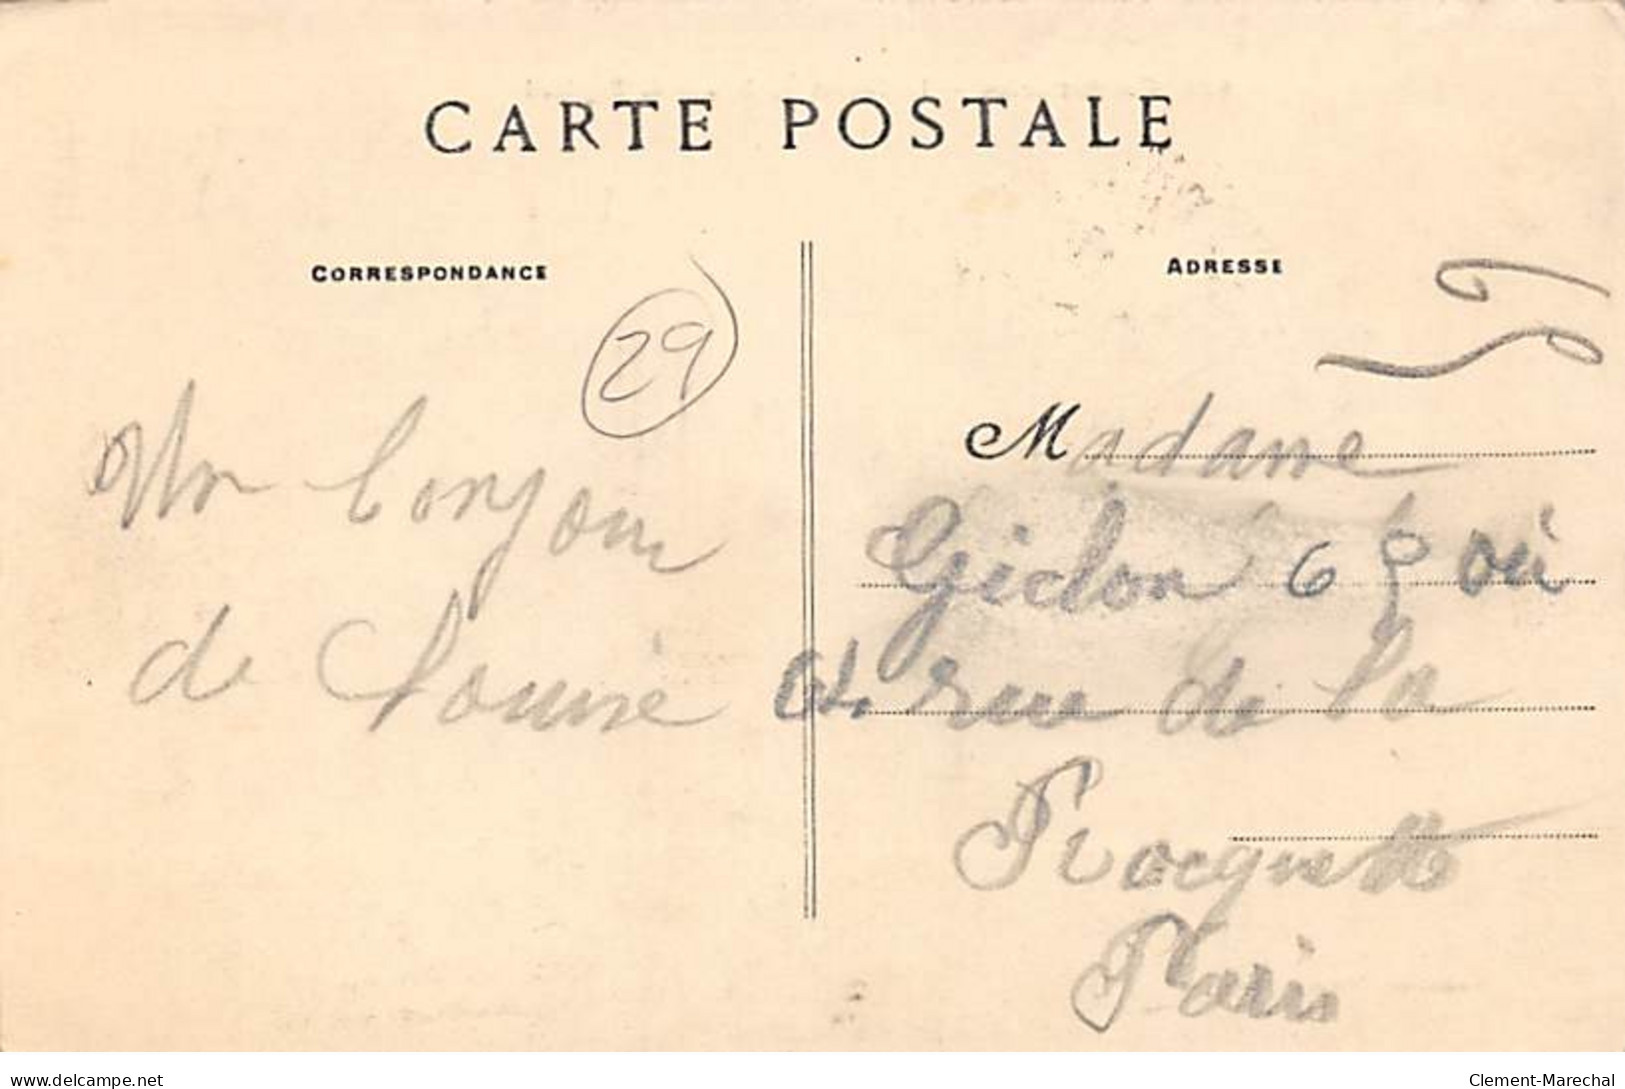 CARTE POSTALE
CORRESPONDANCE
ADRESSE
29
Un bonjour
de Louise
Madame
Gidon
64 rue de la
Roquette
Paris
delcampe.net
Clement-Marechal